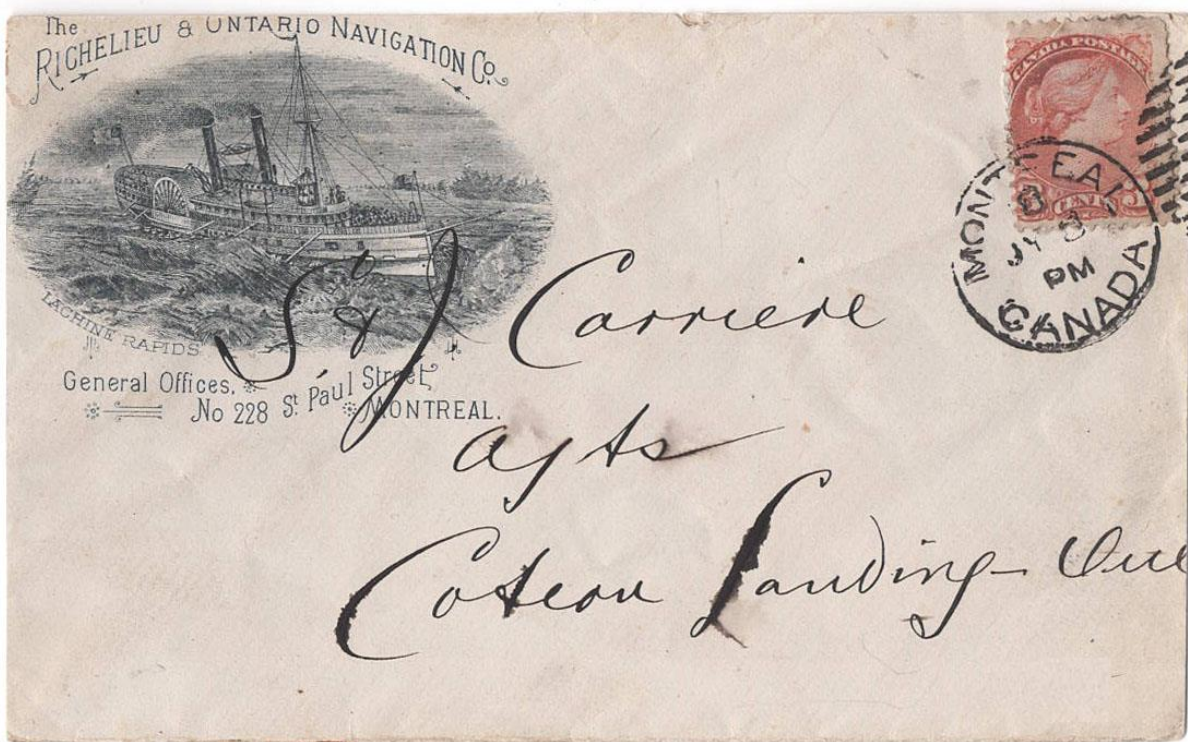 The
RICHELIEU & ONTARIO NAVIGATION Co.
LACHINE RAPIDS
General Offices,
No 228 St. Paul Street,
MONTREAL.
CANADA POSTAGE
3 CENTS 3
MONTREAL
JY 8
PM
CANADA
S. & J Carriere
agts
Coteau Landing Que